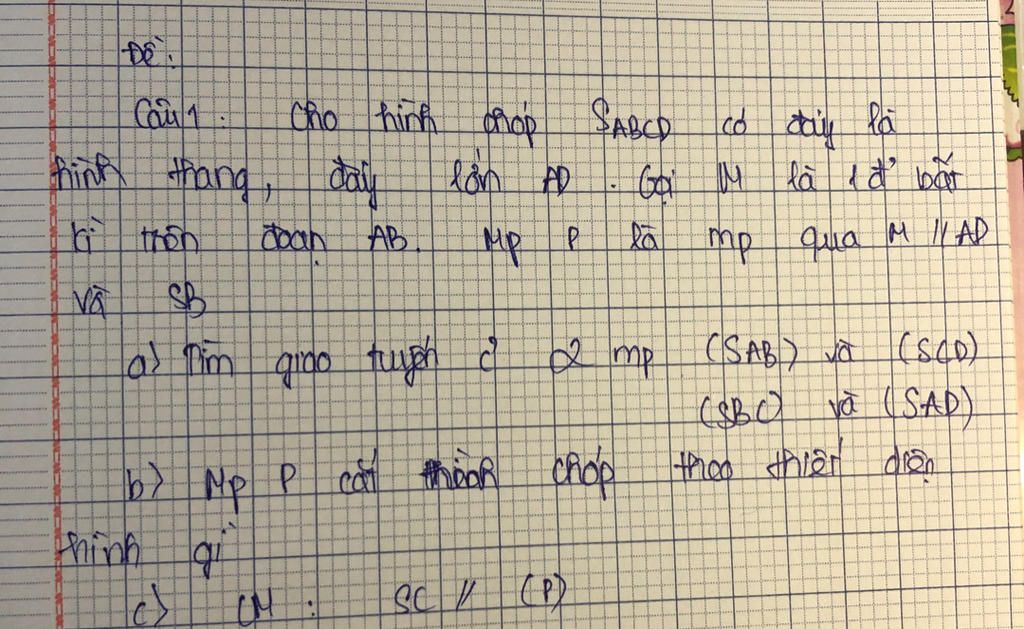 Đề:
Câu 1: Cho hình chóp SABCD có đáy là
hình thang, đáy lớn AD. Gọi M là 1 đ' bất
kì trên đoạn AB. Mp P là mp qua M // AD
và SB
a) Tìm giao tuyến c' 2 mp (SAB) và (SCD)
(SBC) và (SAD)
b) Mp P cắt hình chóp theo thiết diện
hình gì
c) CM: SC // (P)